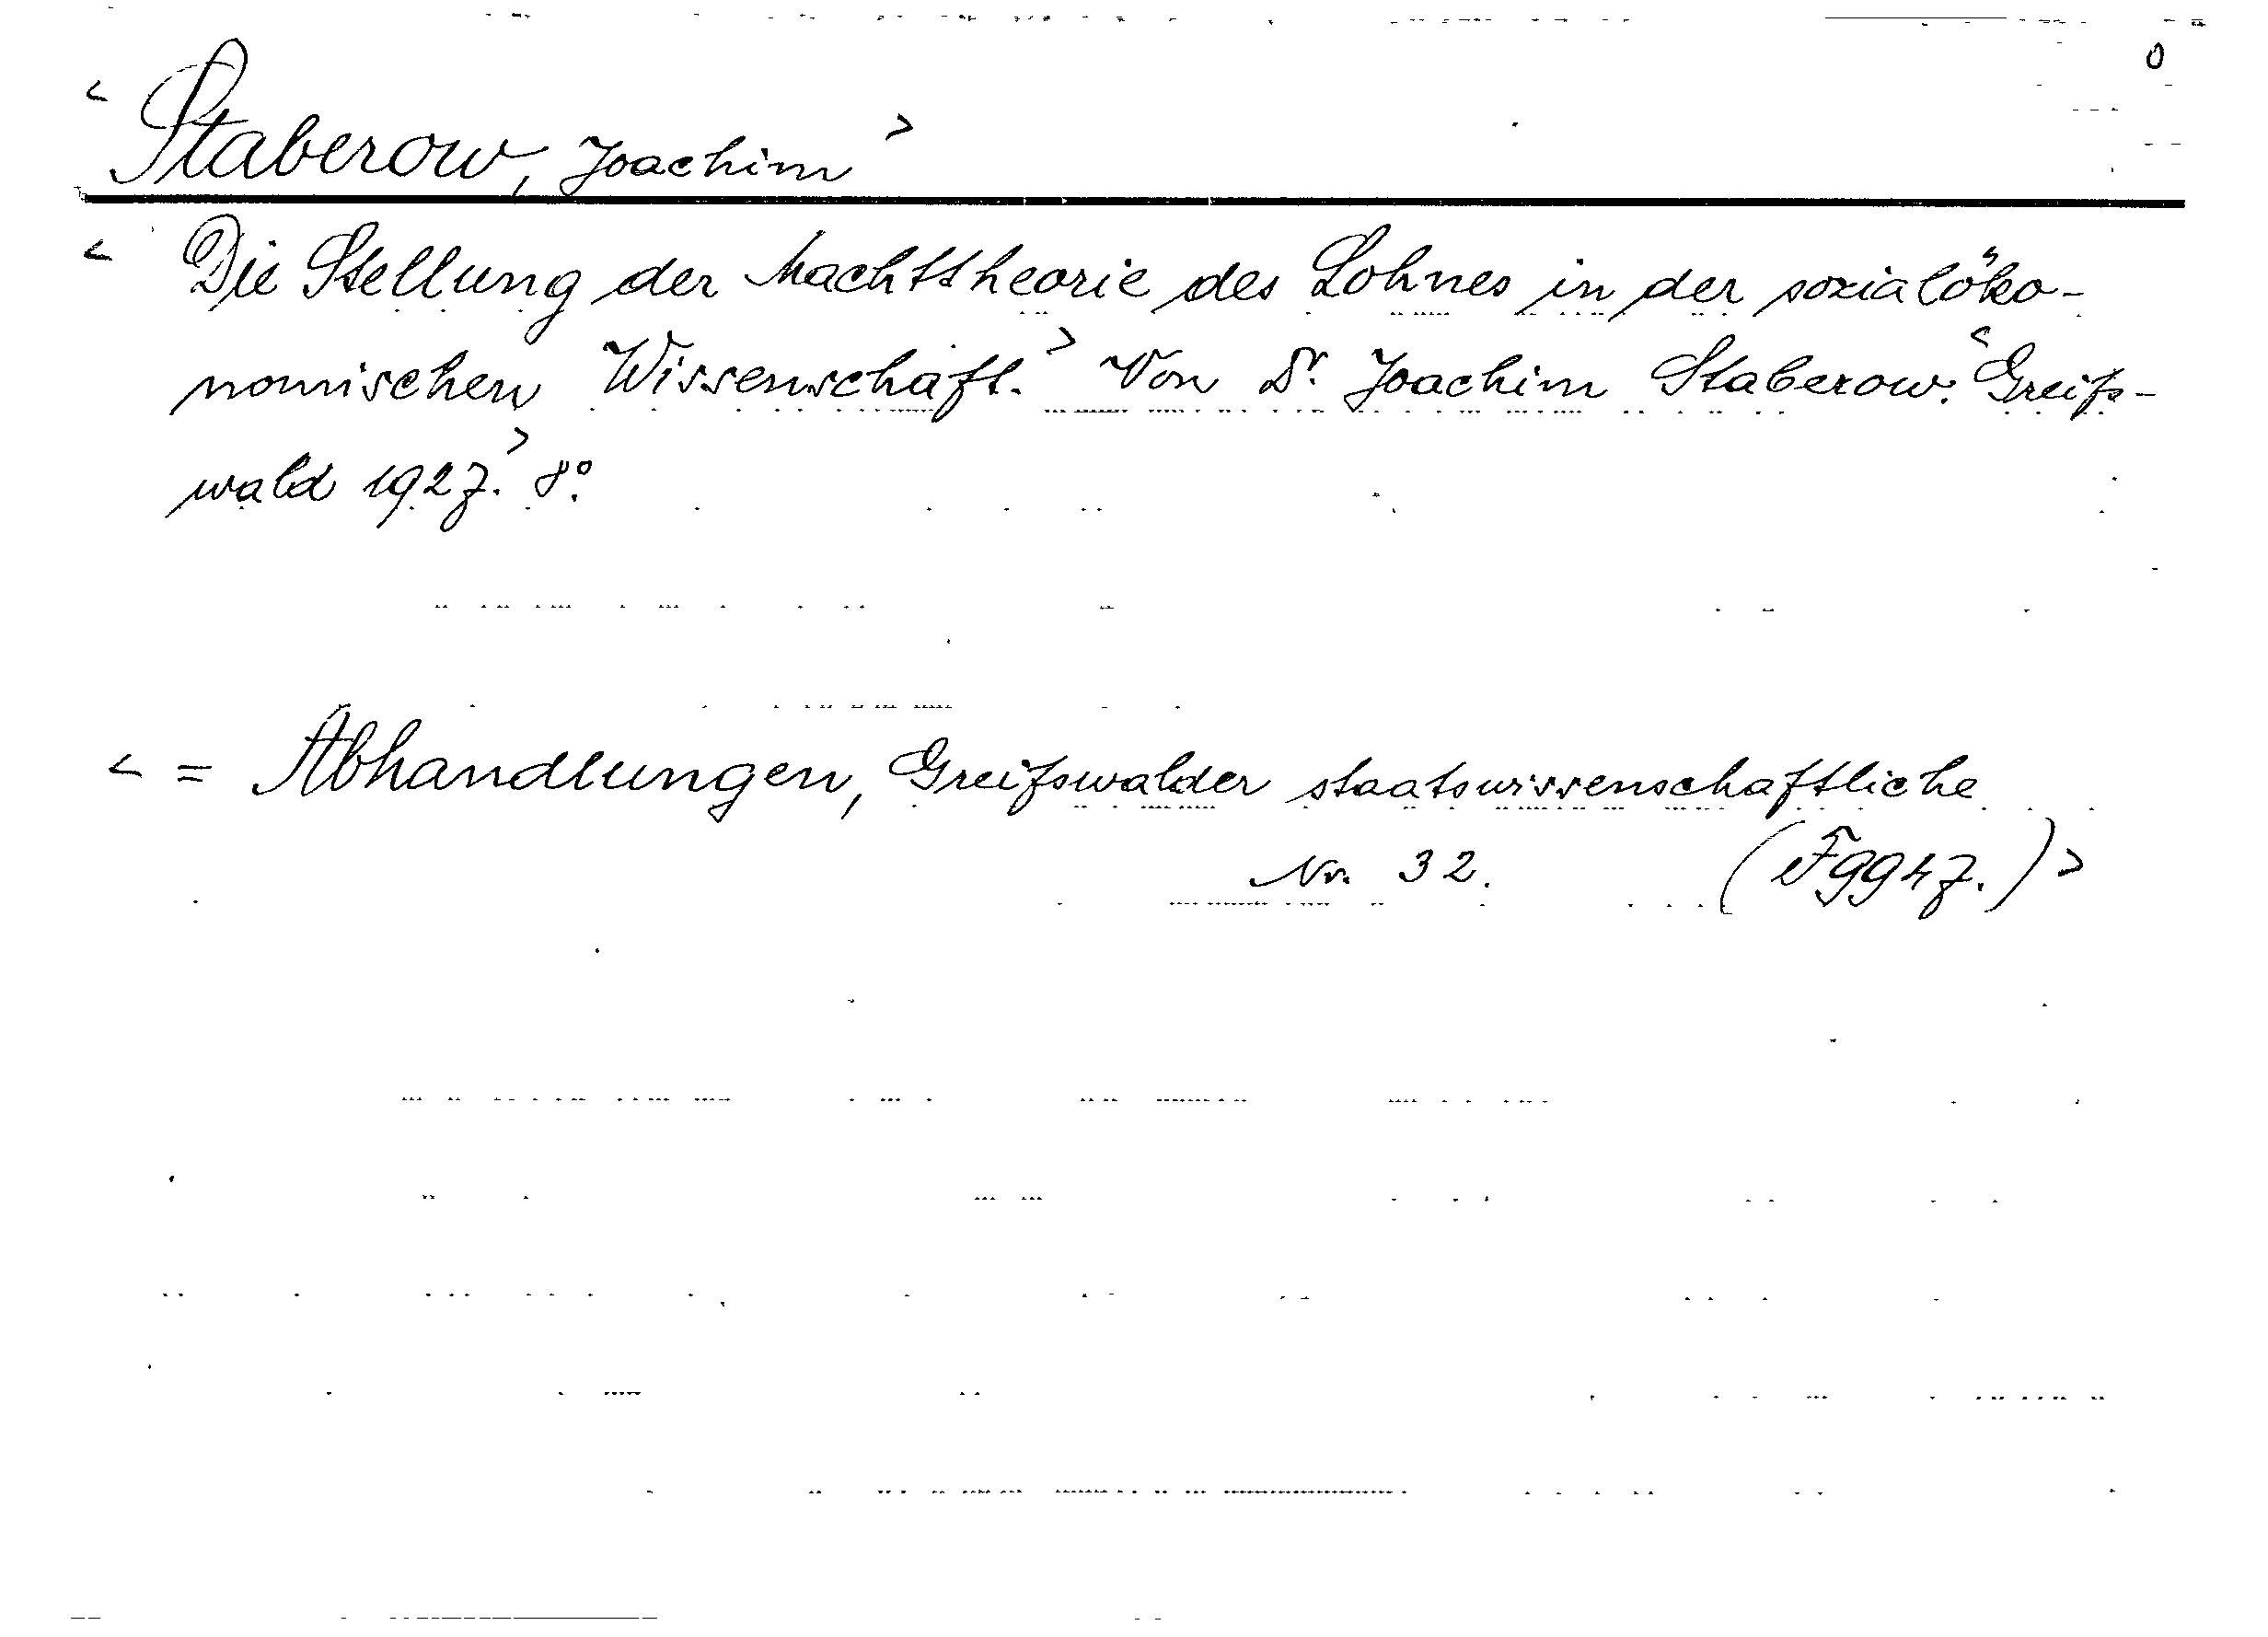 0
< Staberow, Joachim >
< Die Stellung der Machttheorie des Lohnes in der sozialöko-
nomischen Wissenschaft. > Von Dr. Joachim Staberow. < Greifs-
wald 1927. > 8°.
< = Abhandlungen, Greifswalder staatswissenschaftliche
Nr. 32. (F9947.) >